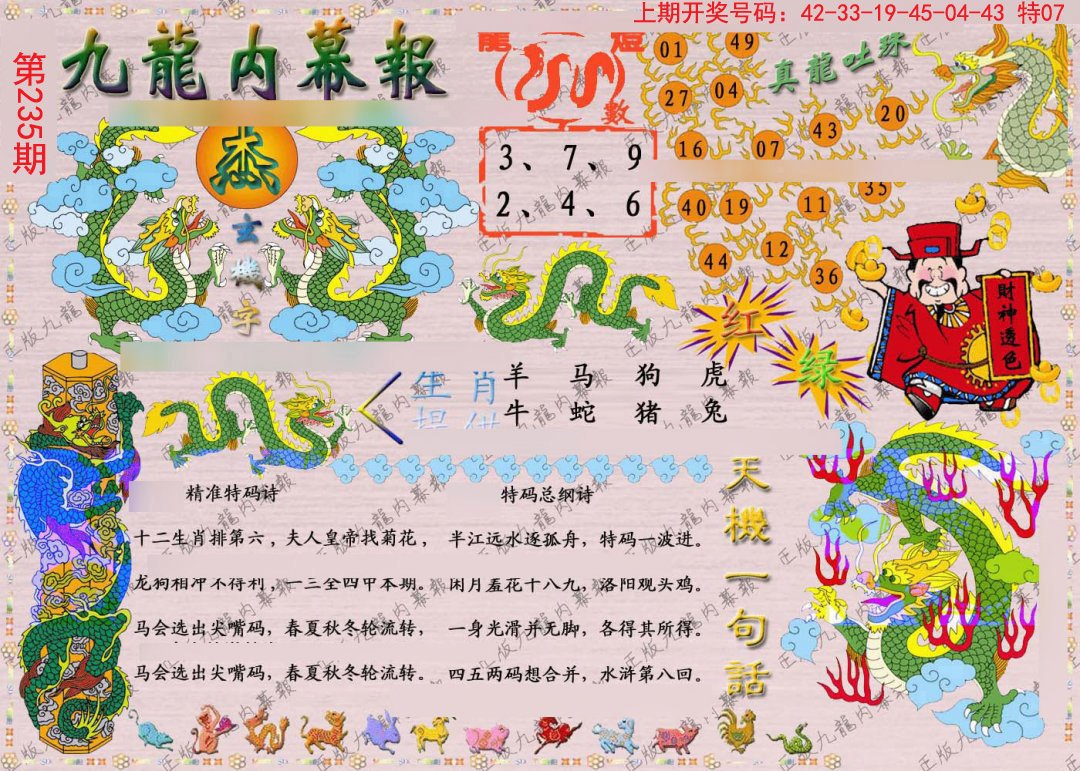 上期开奖号码：42-33-19-45-04-43 特07
第235期
九龍內幕報
龍燈
數
3、7、9
2、4、6
01
49
27
04
43
20
16
07
40
19
11
35
44
12
36
真龍吐珠
玄機字
红
绿
財神透色
生肖
羊 马 狗 虎
牛 蛇 猪 兔
精准特码诗
十二生肖排第六，夫人皇帝找菊花，
龙狗相冲不得利，一三全四甲本期。
马会选出尖嘴码，春夏秋冬轮流转，
马会选出尖嘴码，春夏秋冬轮流转。
特码总纲诗
半江远水逐孤舟，特码一波进。
闲月羞花十八九，洛阳观头鸡。
一身光滑并无脚，各得其所得。
四五两码想合并，水浒第八回。
天機一句話
正版九龍內幕報